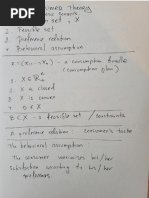 Consumer Theory
set, X
2. Feasible set
3. Preference relation
4. Behavioral assumption
X = (X₁ ... Xₙ) - a consumption bundle
(consumption plan)
1. X ∈ ℝⁿ₊
2. X is closed
3. X is convex
4. 0 ∈ X
B ⊂ X - a feasible set / constraints
A preference relation : consumer's tastes
The behavioral assumption
The consumer
substitution according to his / her
preferences